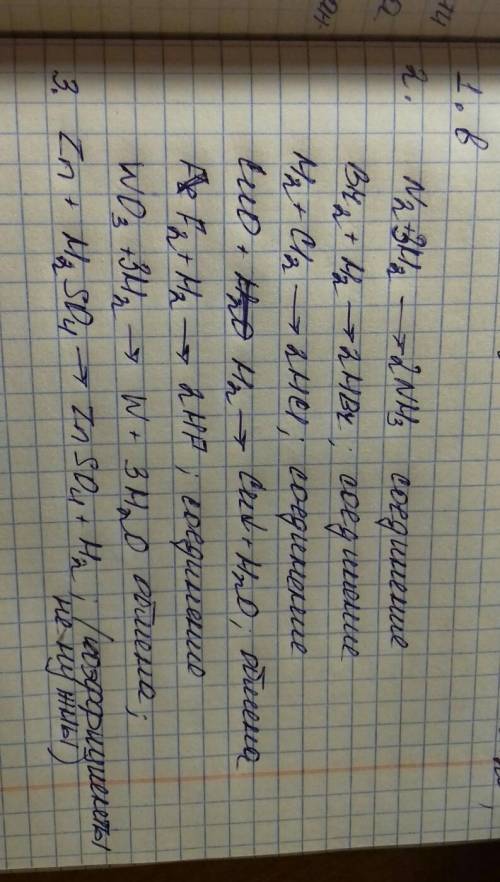 1. в
2. N2+3H2 → 2NH3 соединение
Br2 + H2 → 2HBr; соединение
H2 + Cl2 → 2HCl; соединение
CuO + H2 → Cu + H2O; обмена
F2 + H2 → 2HF; соединение
WO3 + 3H2 → W + 3H2O обмена;
3. Zn + H2SO4 → ZnSO4 + H2; (коэффициенты
не нужны)